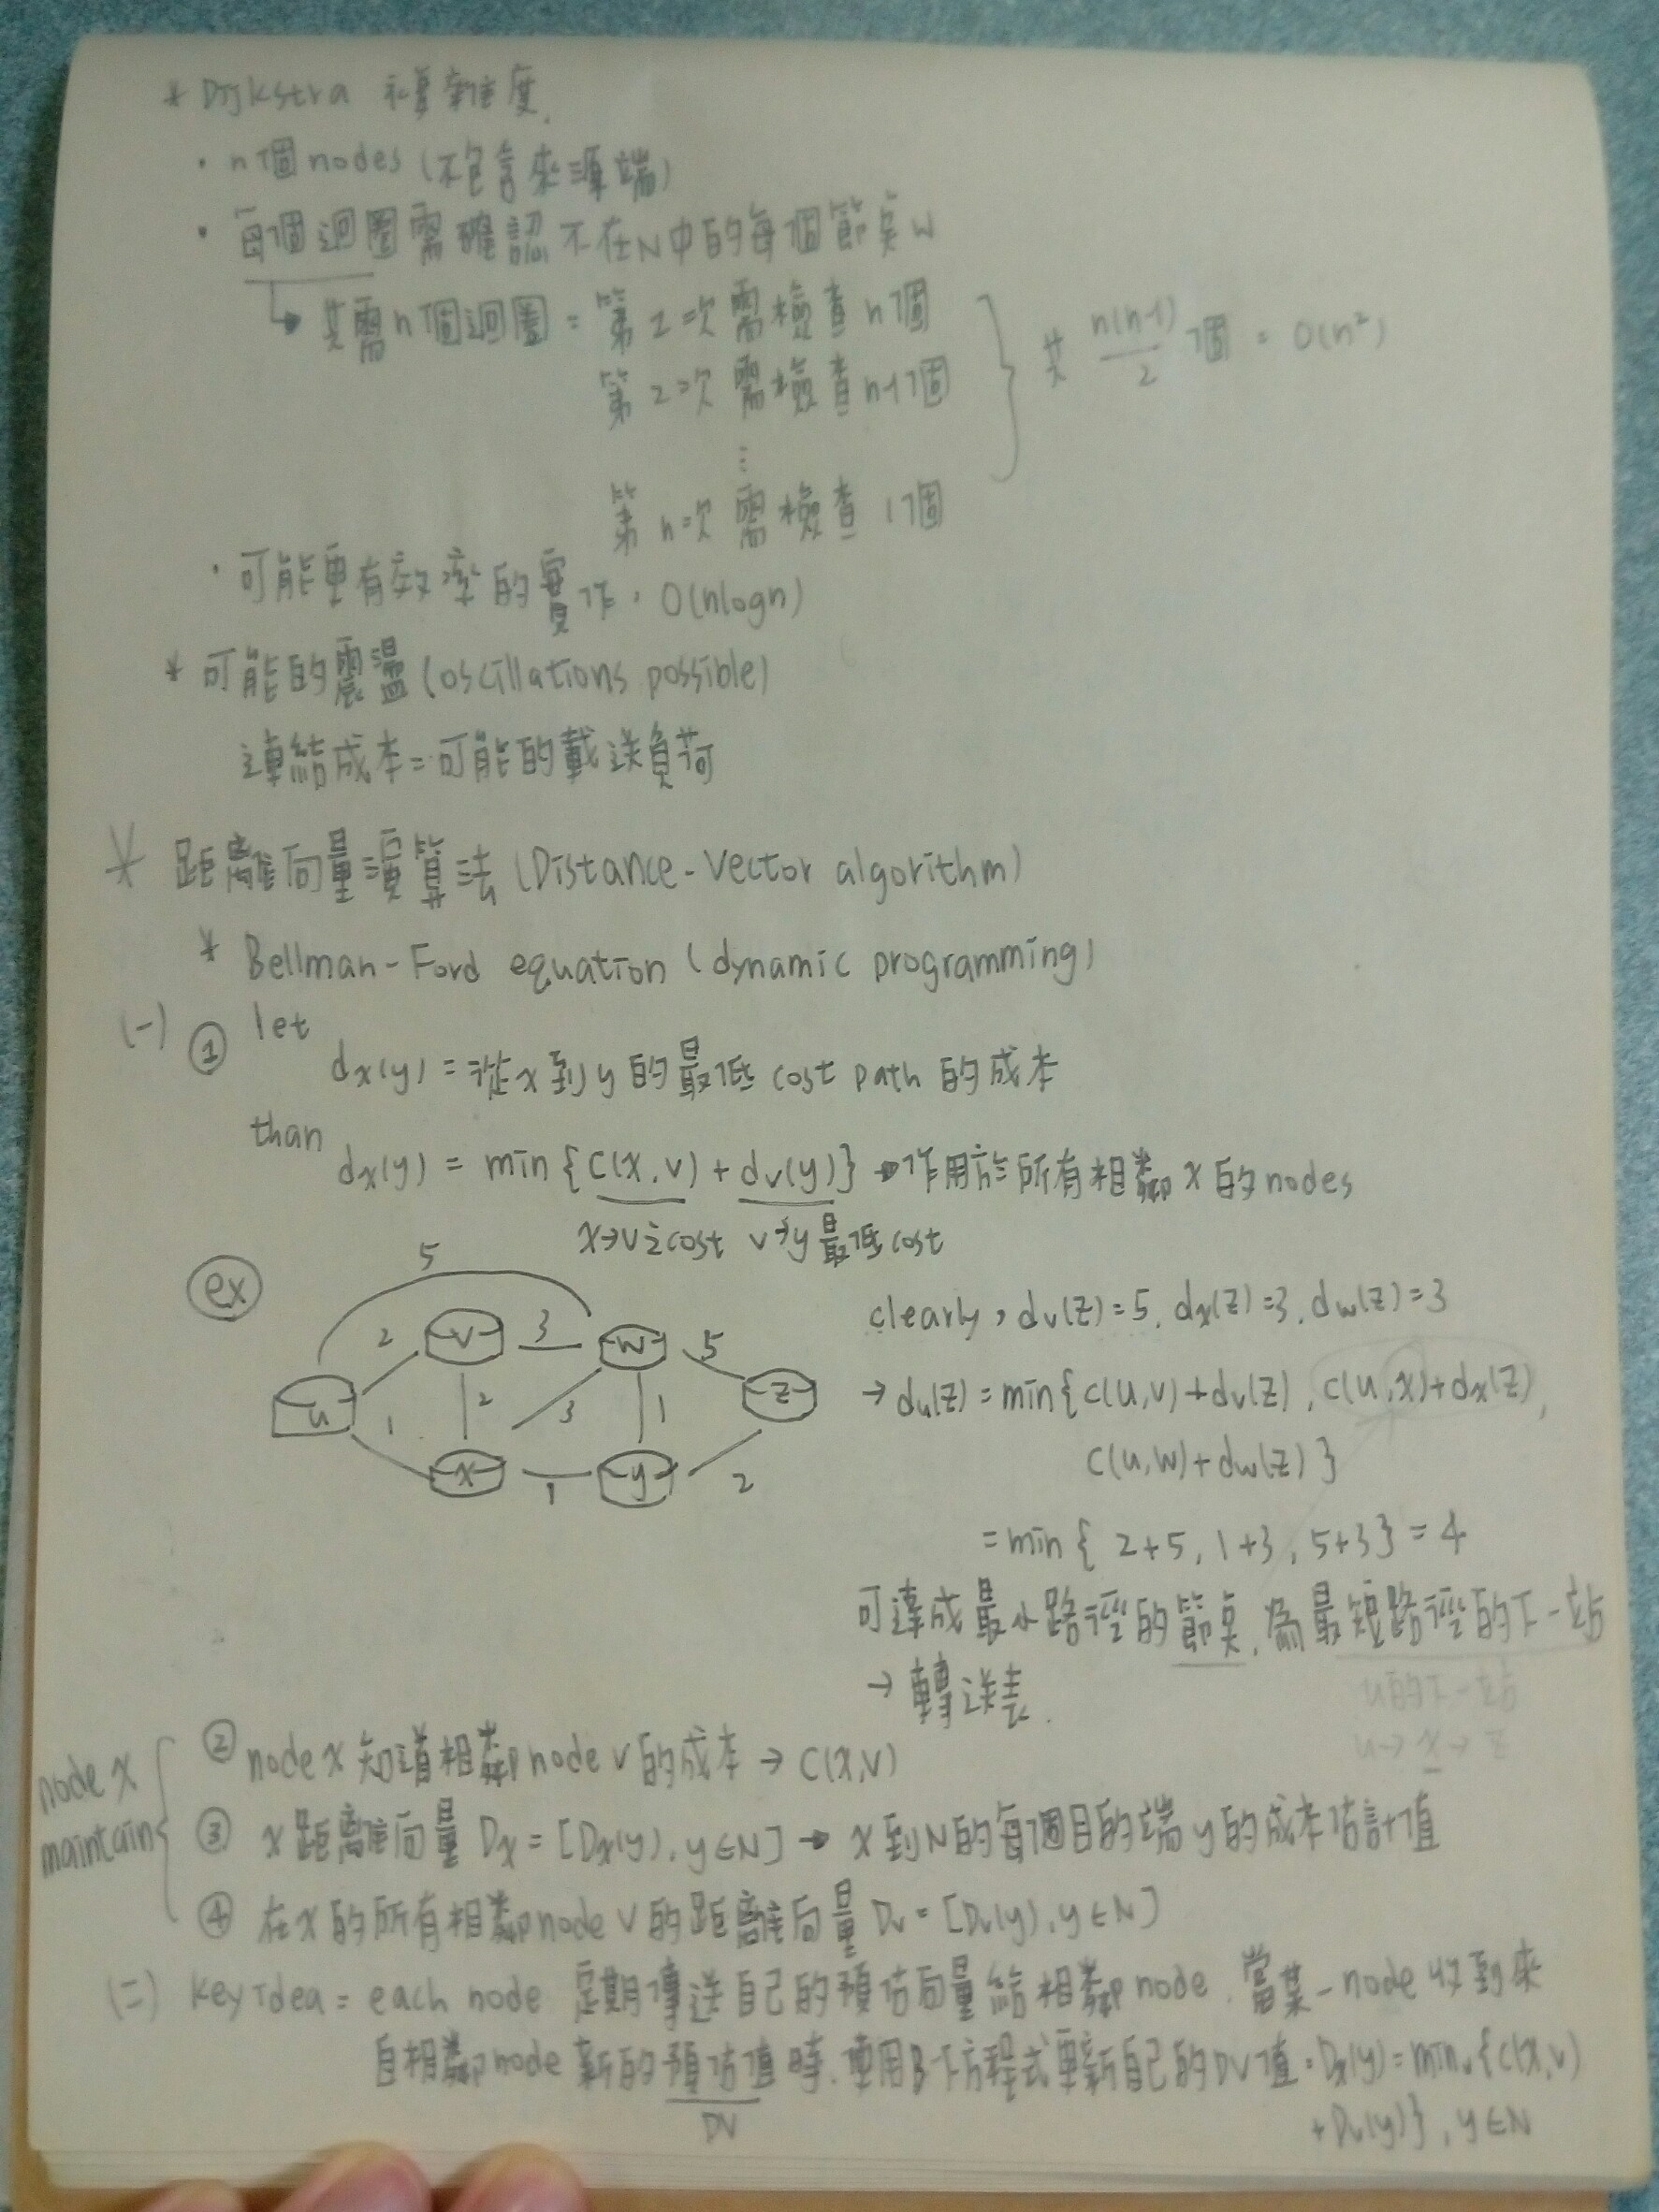 * Dijkstra 複雜度
· n個nodes (不包含來源端)
· 每個迴圈需確認不在N中的每個節點w
共需n個迴圈 = 第1次需檢查n個
第2次需檢查n-1個
⋮
第n次需檢查1個
共 n(n-1)/2 個 = O(n²)
· 可能更有效率的實作, O(nlogn)
* 可能的震盪 (oscillations possible)
連結成本=可能的載送負荷
* 距離向量演算法 (Distance-Vector algorithm)
* Bellman-Ford equation (dynamic programming)
(一) ① let
dx(y) = 從x到y的最低 cost path 的成本
than
dx(y) = min {c(x,v) + dv(y)} → 作用於所有相鄰x的nodes
x→v之cost v→y最低cost
ex
5
2 v 3 w 5
u 1 2 3 1 z
x 1 y 2
clearly, dv(z)=5, dx(z)=3, dw(z)=3
→ du(z) = min{c(u,v)+dv(z), c(u,x)+dx(z),
c(u,w)+dw(z)}
= min{ 2+5, 1+3, 5+3} = 4
可達成最小路徑的節點,為最短路徑的下一站
→ 轉送表.
u的下一站
u→x→z
node x maintain
② node x 知道相鄰node v的成本 → c(x,v)
③ x 距離向量 Dx = [Dx(y), y∈N] → x到N的每個目的端y的成本估計值
④ 在x的所有相鄰node v的距離向量 Dv = [Dv(y), y∈N]
(二) key idea = each node 定期傳送自己的預估向量給相鄰node, 當某一node收到來
自相鄰node新的預估值時, 使用B-F方程式更新自己的DV值: Dx(y)=minv{c(x,v)
DV
+Dv(y)}, y∈N